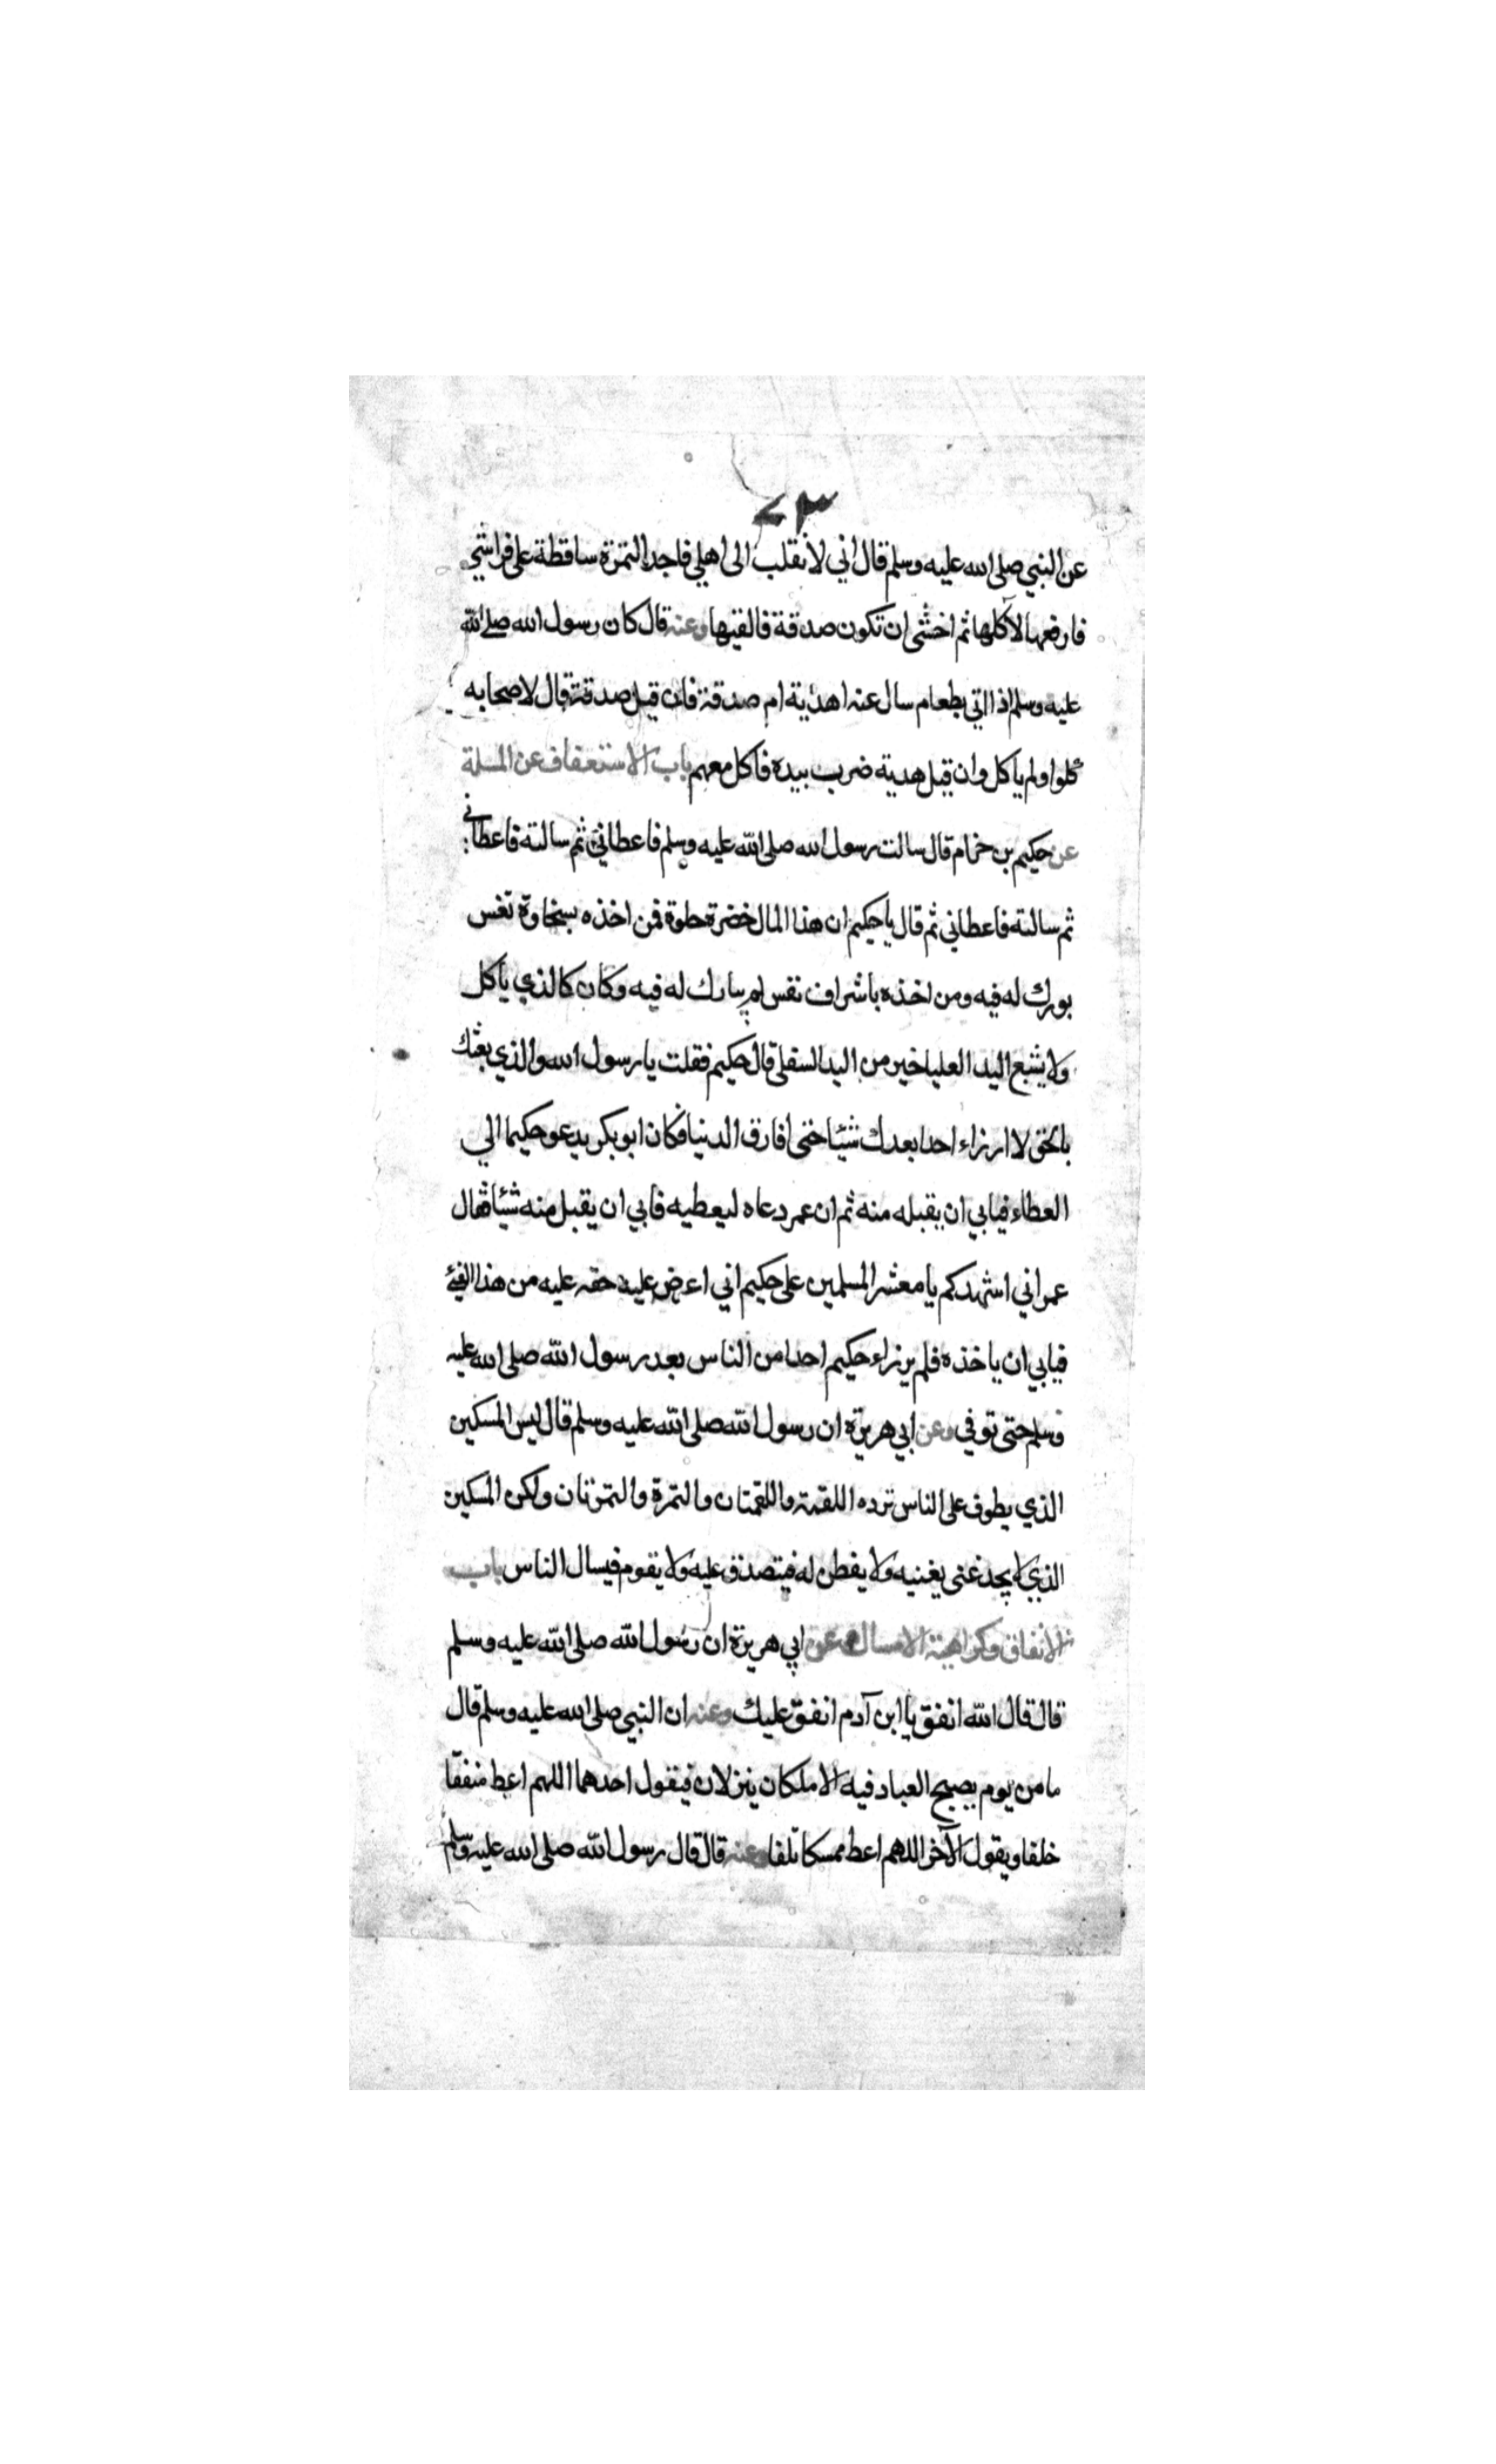 ٧٣
عن النبي صلى الله عليه وسلم قال اني لانقلب الى اهلي فاجد التمرة ساقطة على فراشي
فارفعها لآكلها ثم اخشى ان تكون صدقة فالقيها وعنه قال كان رسول الله صلى الله
عليه وسلم اذا اتي بطعام سال عنه اهدية ام صدقة فان قيل صدقة قال لاصحابه
كلوا ولم ياكل وان قيل هدية ضرب بيده فاكل معهم باب الاستعفاف عن المسلة
عن حكيم بن حزام قال سالت رسول الله صلى الله عليه وسلم فاعطاني ثم سالته فاعطاني
ثم سالته فاعطاني ثم قال يا حكيم ان هذا المال خضرة حلوة فمن اخذه بسخاوة نفس
بورك له فيه ومن اخذه باشراف نفس لم يبارك له فيه وكان كالذي ياكل
ولا يشبع اليد العليا خير من اليد السفلى قال حكيم فقلت يا رسول الله والذي بعثك
بالحق لا ارزاء احدا بعدك شيئا حتى افارق الدنيا فكان ابو بكر يدعو حكيما الي
العطاء فيابي ان يقبله منه ثم ان عمر دعاه ليعطيه فابي ان يقبل منه شيئا فقال
عمر اني اشهدكم يا معشر المسلمين على حكيم اني اعرض عليه حقه عليه من هذا الفئ
فيابي ان ياخذه فلم يرزاء حكيم احدا من الناس بعد رسول الله صلى الله عليه
وسلم حتى توفي وعن ابي هريرة ان رسول الله صلى الله عليه وسلم قال ليس المسكين
الذي يطوف على الناس ترده اللقمة واللقمتان والتمرة والتمرتان ولكن المسكين
الذي لا يجد غنى يغنيه ولا يفطن له فيتصدق عليه ولا يقوم فيسال الناس باب
الانفاق وكراهية الامساك عن ابي هريرة ان رسول الله صلى الله عليه وسلم
قال قال الله انفق يا ابن آدم انفق عليك وعنه ان النبي صلى الله عليه وسلم قال
ما من يوم يصبح العباد فيه الا ملكان ينزلان فيقول احدهما اللهم اعط منفقا
خلفا ويقول الآخر اللهم اعط ممسكا تلفا وعنه قال قال رسول الله صلى الله عليه وسلم